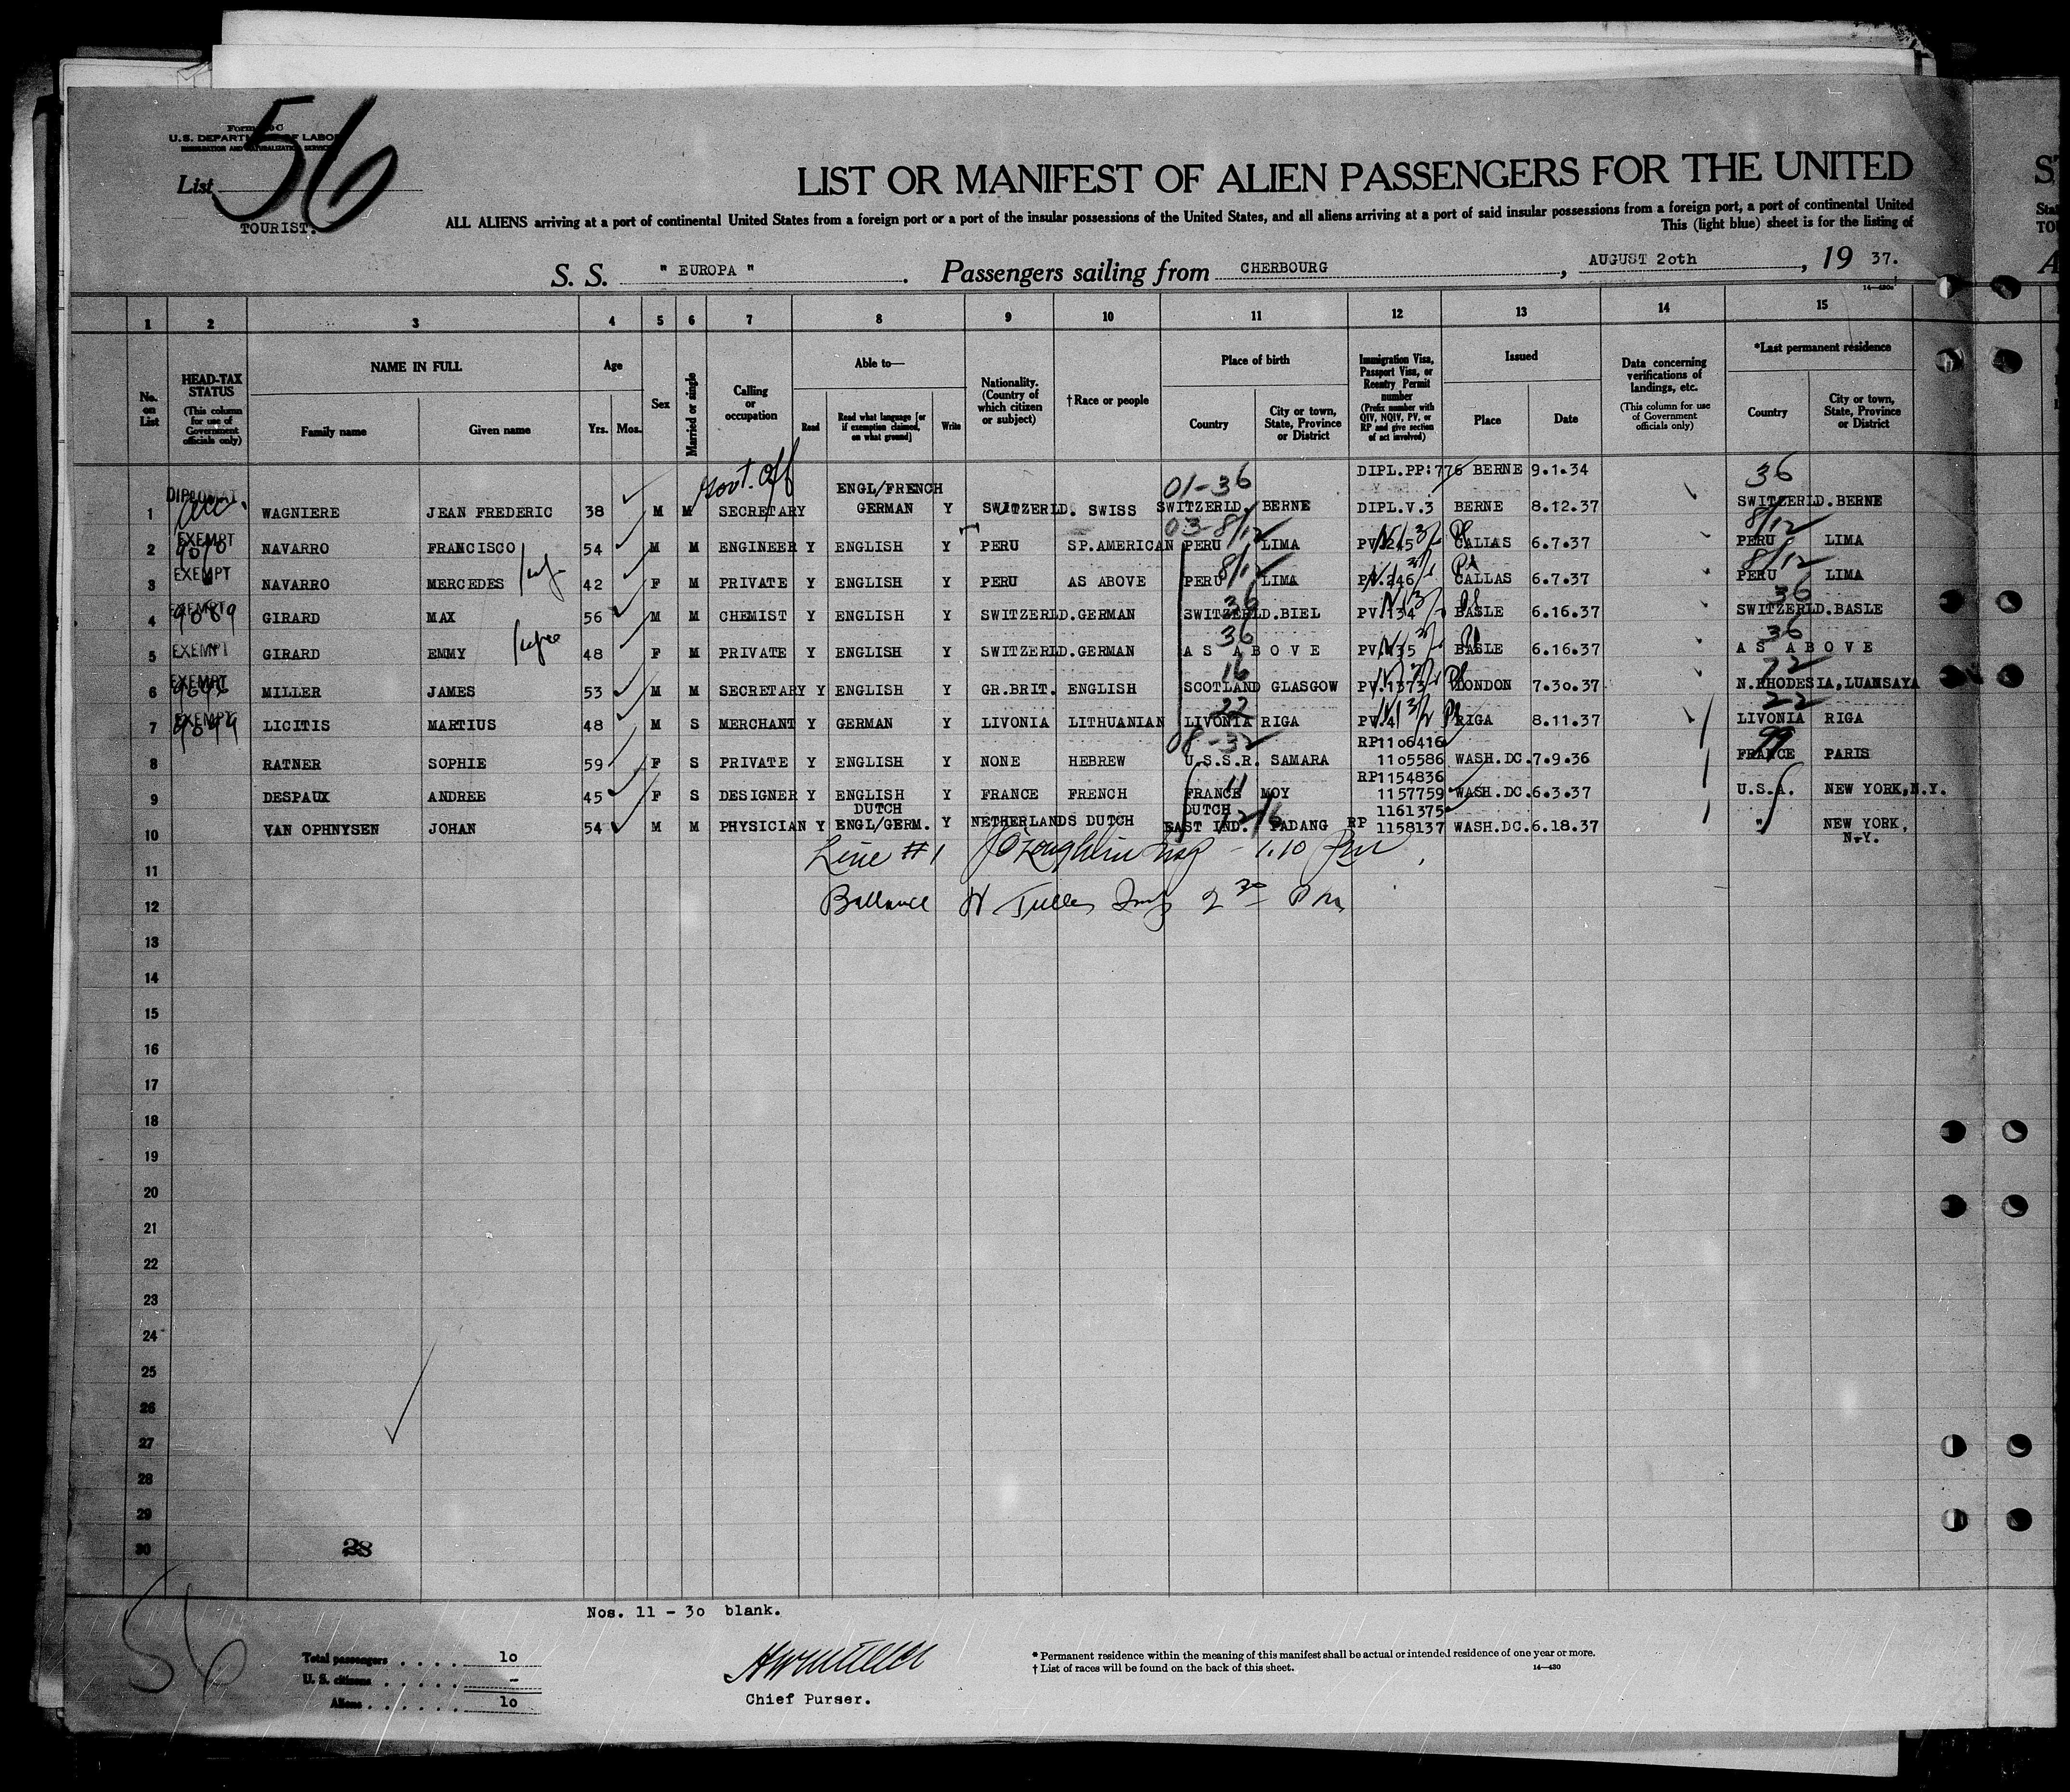 Form 500 C
U.S. DEPARTMENT OF LABOR
IMMIGRATION AND NATURALIZATION SERVICE
List 56
TOURIST.
LIST OR MANIFEST OF ALIEN PASSENGERS FOR THE UNITED
ALL ALIENS arriving at a port of continental United States from a foreign port or a port of the insular possessions of the United States, and all aliens arriving at a port of said insular possessions from a foreign port, a port of continental United
This (light blue) sheet is for the listing of
S. S. " EUROPA " . Passengers sailing from CHERBOURG , AUGUST 20th , 19 37.
14—430
1 2 3 4 5 6 7 8 9 10 11 12 13 14 15
No. on List
HEAD-TAX STATUS (This column for use of Government officials only)
NAME IN FULL
Family name Given name
Age
Yrs. Mos.
Sex
Married or single
Calling or occupation
Able to—
Read Read what language [or if exemption claimed, on what ground] Write
Nationality. (Country of which citizen or subject)
†Race or people
Place of birth
Country City or town, State, Province or District
Immigration Visa, Passport Visa, or Reentry Permit number (Prefix number with QIV, NQIV, PV, or RP and give section of act involved)
Issued
Place Date
Data concerning verifications of landings, etc. (This column for use of Government officials only)
*Last permanent residence
Country City or town, State, Province or District
Govt. Off 01-36 DIPL.PP:776 BERNE 9.1.34 36
1 DIPLOMAT WAGNIERE JEAN FREDERIC 38 M M SECRETARY ENGL/FRENCH GERMAN Y SWITZERLD. SWISS SWITZERLD. BERNE DIPL.V.3 BERNE 8.12.37 SWITZERLD.BERNE
03-8/12 8/12
2 EXEMPT NAVARRO FRANCISCO 54 M M ENGINEER Y ENGLISH Y PERU SP.AMERICAN PERU LIMA PV.245 CALLAS 6.7.37 PERU LIMA
8/12 8/12
3 EXEMPT NAVARRO MERCEDES 42 F M PRIVATE Y ENGLISH Y PERU AS ABOVE PERU LIMA PV.246 CALLAS 6.7.37 PERU LIMA
36 36
4 EXEMPT 9089 GIRARD MAX 56 M M CHEMIST Y ENGLISH Y SWITZERLD.GERMAN SWITZERLD.BIEL PV.134 BASLE 6.16.37 SWITZERLD.BASLE
36 36
5 EXEMPT GIRARD EMMY 48 F M PRIVATE Y ENGLISH Y SWITZERLD.GERMAN AS ABOVE PV.135 BASLE 6.16.37 AS ABOVE
16
6 EXEMPT MILLER JAMES 53 M M SECRETARY Y ENGLISH Y GR.BRIT. ENGLISH SCOTLAND GLASGOW PV.1373 LONDON 7.30.37 N.RHODESIA,LUANSAYA
22 22
7 EXEMPT LICITIS MARTIUS 48 M S MERCHANT Y GERMAN Y LIVONIA LITHUANIAN LIVONIA RIGA PV.4 RIGA 8.11.37 LIVONIA RIGA
08-32 RP1106416 99
8 RATNER SOPHIE 59 F S PRIVATE Y ENGLISH Y NONE HEBREW U.S.S.R. SAMARA 1105586 WASH.DC.7.9.36 FRANCE PARIS
11 RP1154836
9 DESPAUX ANDREE 45 F S DESIGNER Y ENGLISH Y FRANCE FRENCH FRANCE MOY 1157759 WASH.DC.6.3.37 U.S.A. NEW YORK,N.Y.
DUTCH DUTCH 1161375
10 VAN OPHNYSEN JOHAN 54 M M PHYSICIAN Y ENGL/GERM. Y NETHERLANDS DUTCH EAST IND. PADANG RP 1158137 WASH.DC.6.18.37 " NEW YORK, N.Y.
Line #1 1.10
11
Ballance 2 30 Pm
12
13
14
15
16
17
18
19
20
21
22
23
24
25
26
27
28
29
30 28
Nos. 11 - 30 blank.
56
Total passengers . . . . 10
U. S. citizens . . . . . . -
Aliens . . . . . . 10
Chief Purser.
* Permanent residence within the meaning of this manifest shall be actual or intended residence of one year or more.
† List of races will be found on the back of this sheet.
14—430